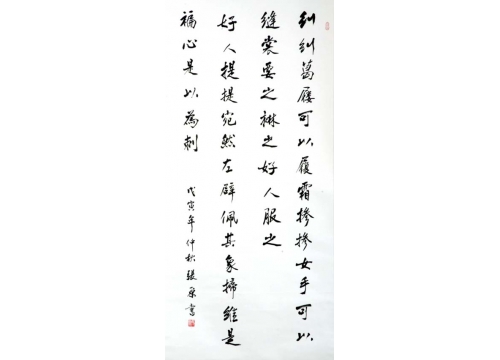 纠纠葛屦可以履霜掺掺女手可以
缝裳要之襋之好人服之
好人提提宛然左辟佩其象揥维是
褊心是以為刺
戊寅年仲秋張
書